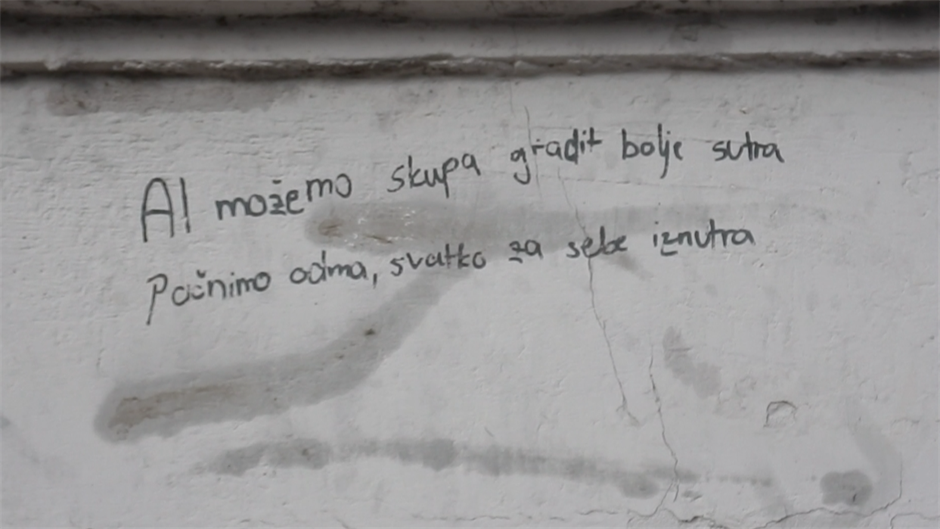 Al možemo skupa gradit bolje sutra
Počnimo odma, svatko za sebe iznutra